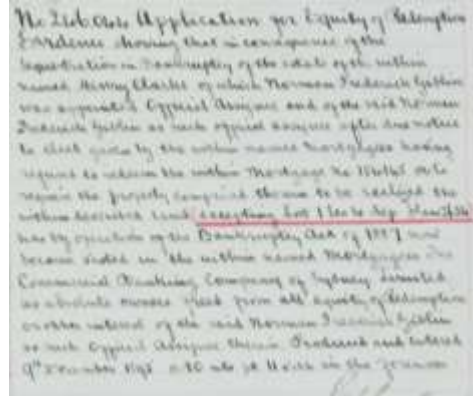 No 246066 Application for Equity of Redemption
Evidence showing that in consequence of the
sequestration in Bankruptcy of the estate of the within
named Henry Clarke of which Norman Frederick Giblin
was appointed Official Assignee and of the said Norman
Frederick Giblin as such official assignee after due notice
to elect given by the within named Mortgagees having
required to redeem the within Mortgage No or to
require the property comprised therein to be realized the
within described land excepting Lot 1 Sec
has by operation of the Bankruptcy Act of 1887 now
become vested in the within named Mortgagees The
Commercial Banking Company of Sydney Limited
as absolute owners freed from all equity of Redemption
or other interest of the said Norman Frederick Giblin
as such Official Assignee therein Produced and entered
9th December 1895 at 10 at in the forenoon